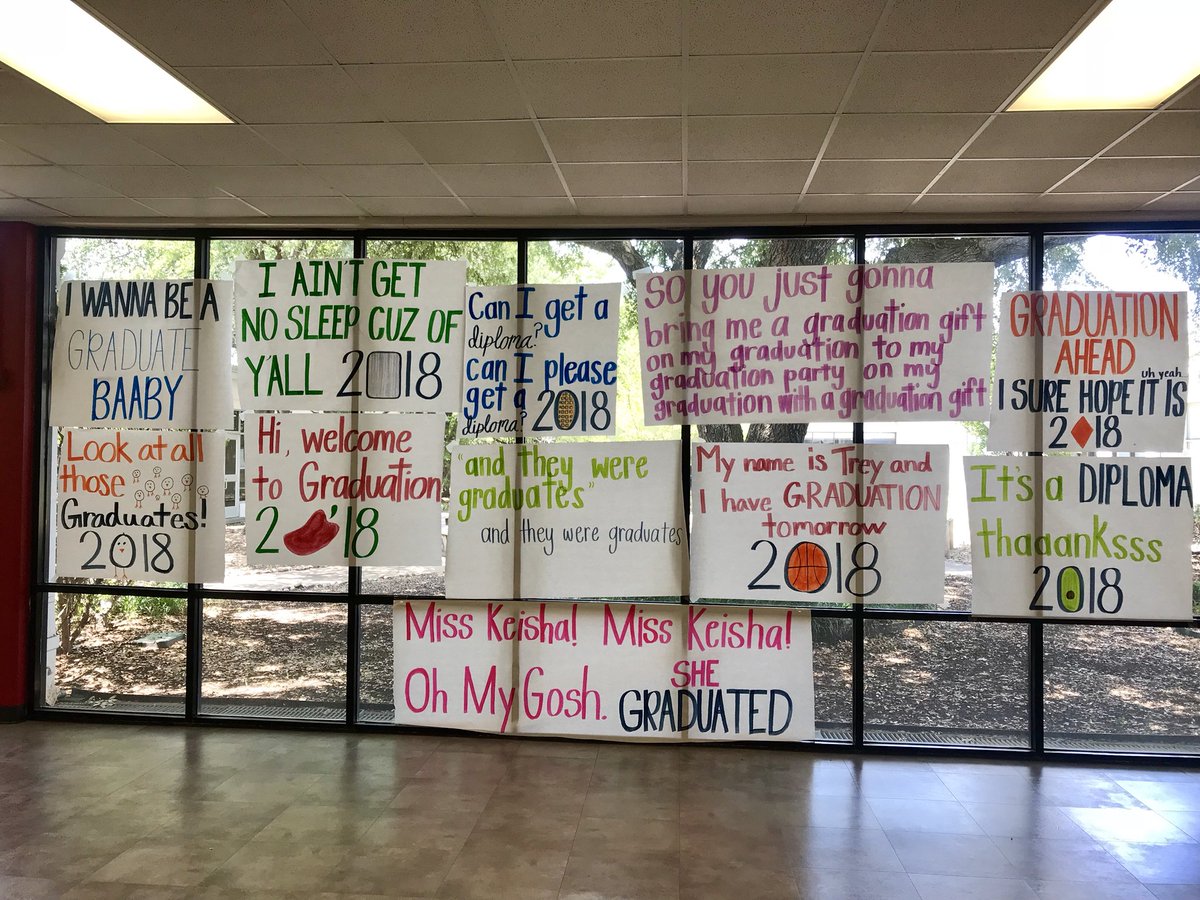 I WANNA BE A
GRADUATE
BAABY
I AIN'T GET
NO SLEEP CUZ OF
Y'ALL 2018
Can I get a
diploma?
can I please
get a 2018
diploma?
So you just gonna
bring me a graduation gift
on my graduation to my
graduation party on my
graduation with a graduation gift
GRADUATION
AHEAD
uh yeah
I SURE HOPE IT IS
2018
Look at all
those
Graduates!
2018
Hi, welcome
to Graduation
20'18
"and they were
graduates"
and they were graduates
My name is Trey and
I have GRADUATION
tomorrow
2018
It's a DIPLOMA
thaaanksss
2018
Miss Keisha! Miss Keisha!
Oh My Gosh. SHE
GRADUATED